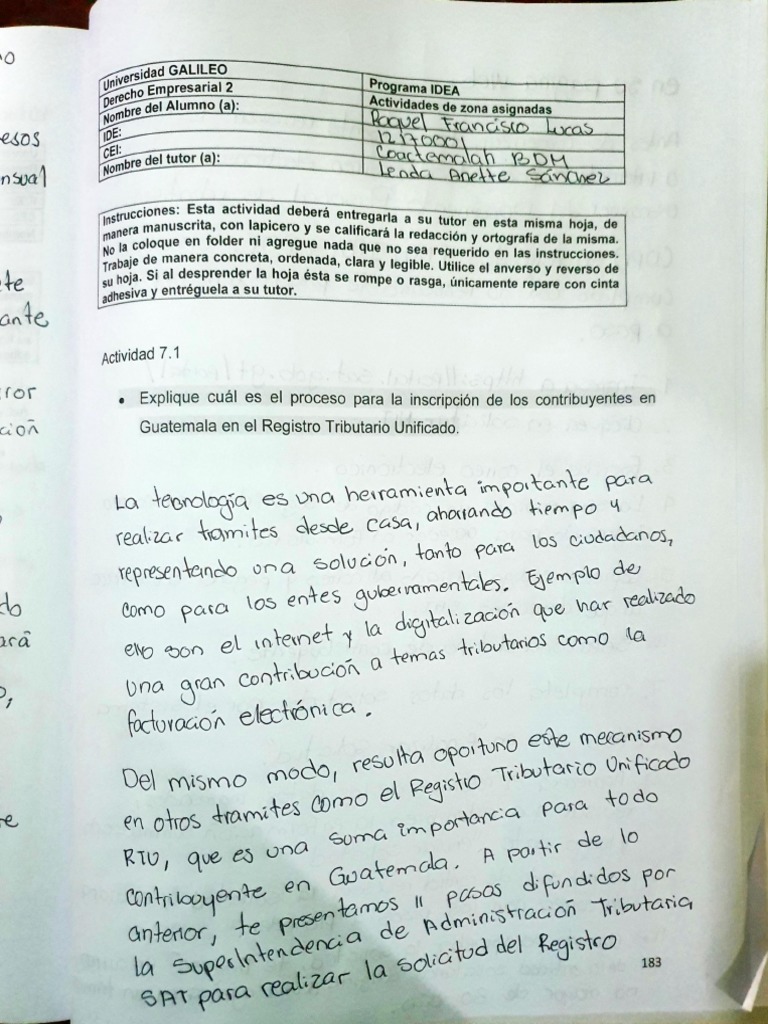 o
esos
nsual
te
ante
ror
ción
do
ará
o,
re
Universidad GALILEO
Programa IDEA
Derecho Empresarial 2
Actividades de zona asignadas
Nombre del Alumno (a):
Raquel Francisco Lucas
IDE:
12170001
CEI:
Coactemalan BDM
Nombre del tutor (a):
Lenda Anette Sánchez
Instrucciones: Esta actividad deberá entregarla a su tutor en esta misma hoja, de
manera manuscrita, con lapicero y se calificará la redacción y ortografía de la misma.
No la coloque en folder ni agregue nada que no sea requerido en las instrucciones.
Trabaje de manera concreta, ordenada, clara y legible. Utilice el anverso y reverso de
su hoja. Si al desprender la hoja ésta se rompe o rasga, únicamente repare con cinta
adhesiva y entréguela a su tutor.
Actividad 7.1
• Explique cuál es el proceso para la inscripción de los contribuyentes en
Guatemala en el Registro Tributario Unificado.
La tecnología es una herramienta importante para
realizar tramites desde casa, ahorrando tiempo y
representando una solución, tanto para los ciudadanos,
como para los entes gubernamentales. Ejemplo de
ello son el internet y la digitalización que har realizado
una gran contribución a temas tributarios como la
facturación electrónica.
Del mismo modo, resulta oportuno este mecanismo
en otros tramites como el Registro Tributario Unificado
RTU, que es una suma importancia para todo
contribuyente en Guatemala. A partir de lo
anterior, te presentamos 11 pasos difundidos por
la SuperIntendencia de Administración Tributaria,
SAT para realizar la solicitud del Registro
183